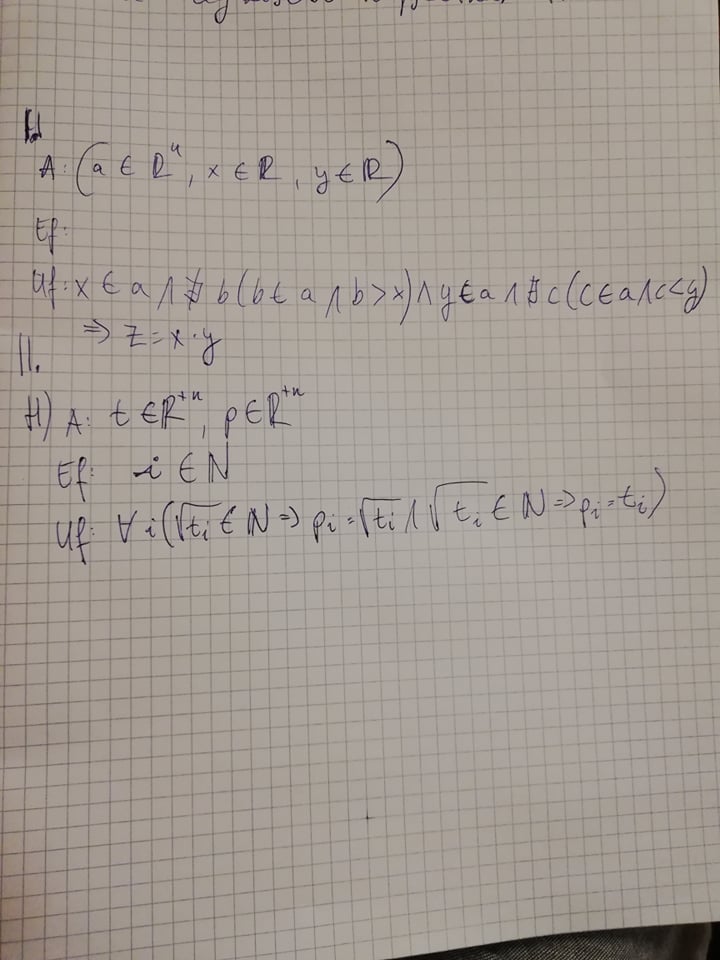 A: (a ∈ ℝⁿ, x ∈ ℝ, y ∈ ℝ)
Ef:
Uf: x ∈ a ∧ ∄ b (b ∈ a ∧ b > x) ∧ y ∈ a ∧ ∄ c (c ∈ a ∧ c < y)
⇒ z = x · y
II.
A: t ∈ ℝ⁺ⁿ, p ∈ ℝ⁺ⁿ
Ef: i ∈ ℕ
Uf: ∀ i (√tᵢ ∈ ℕ ⇒ pᵢ = √tᵢ ∧ √tᵢ ∈ ℕ ⇒ pᵢ = tᵢ)